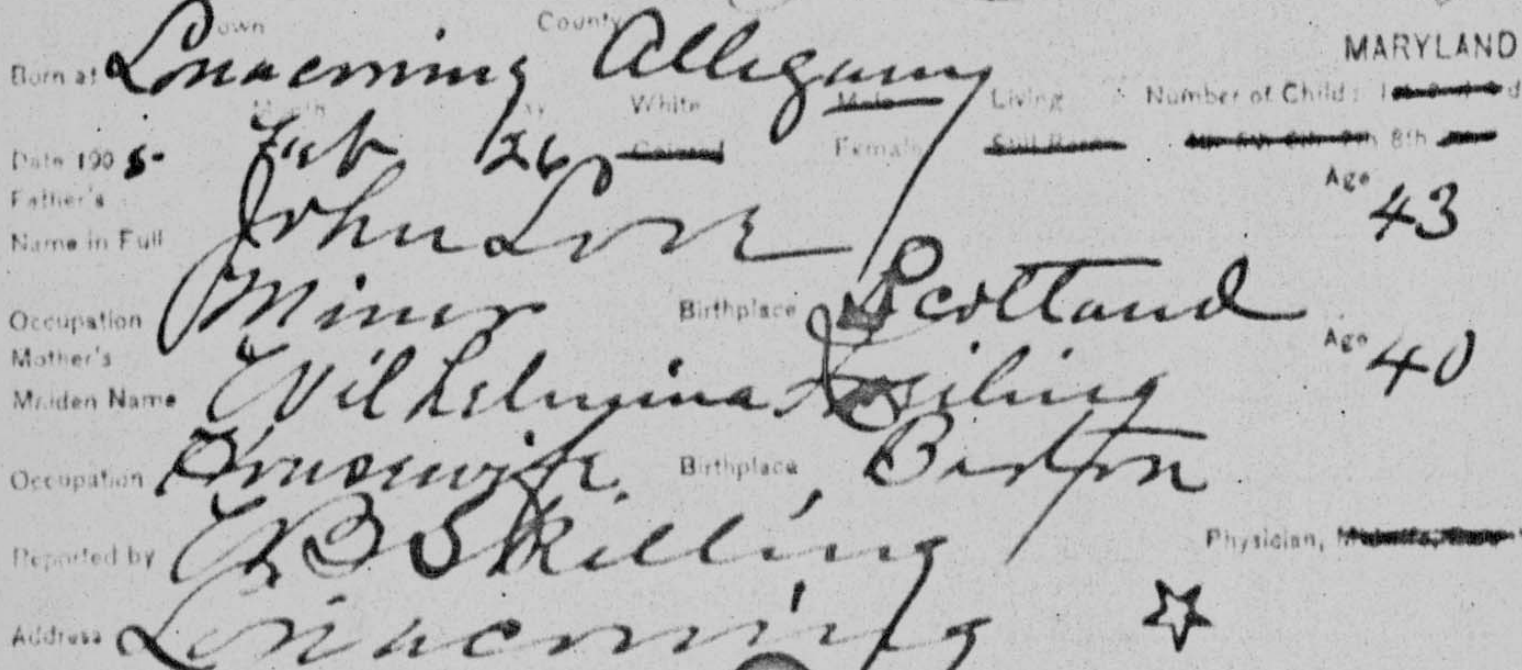 Town County MARYLAND
Born at Lonaconing Allegany
Month Day White Male Living Number of Child: 1st
Date 1905- Feb 26 Colored Female Still Born 8th
Father's Age 43
Name in Full John Love
Occupation Miner Birthplace Scotland
Mother's Age 40
Maiden Name Wilhelmina
Occupation Housewife. Birthplace Barton
Reported by B Skilling Physician, Midwife,
Address Lonaconing